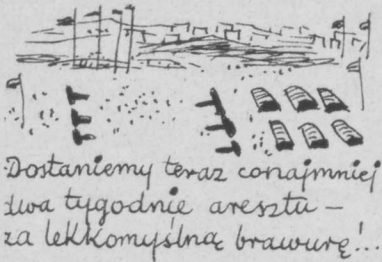 Dostaniemy teraz conajmniej
dwa tygodnie aresztu –
za lekkomyślną brawurę!...